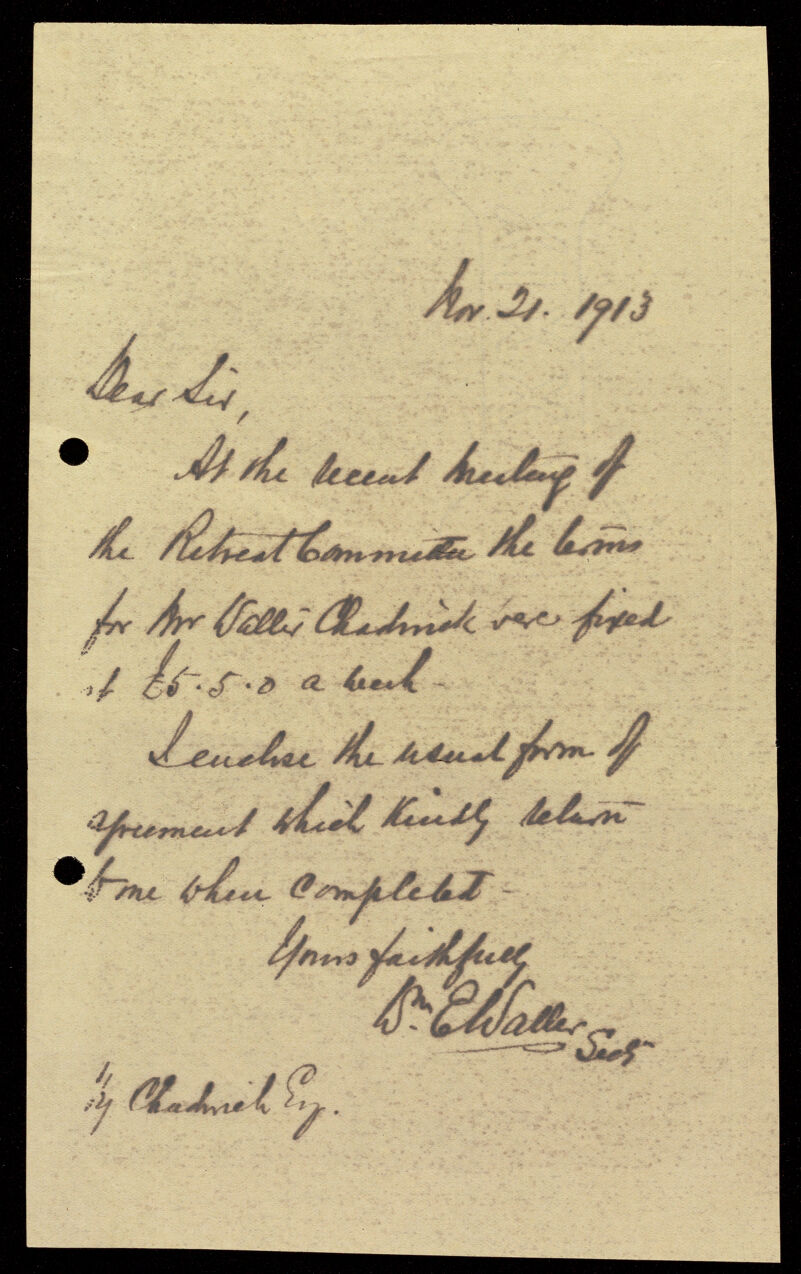 Nov. 21. 1913
Dear Sir,
At the recent meeting of
the Retreat Committee the terms
for Mr Wallis Chadwick were fixed
at £5.5.0 a week -
I enclose the usual form of
agreement which kindly return
to me when completed -
Yours faithfully
Wm. E Waller
Secy
Chadwick Esq.